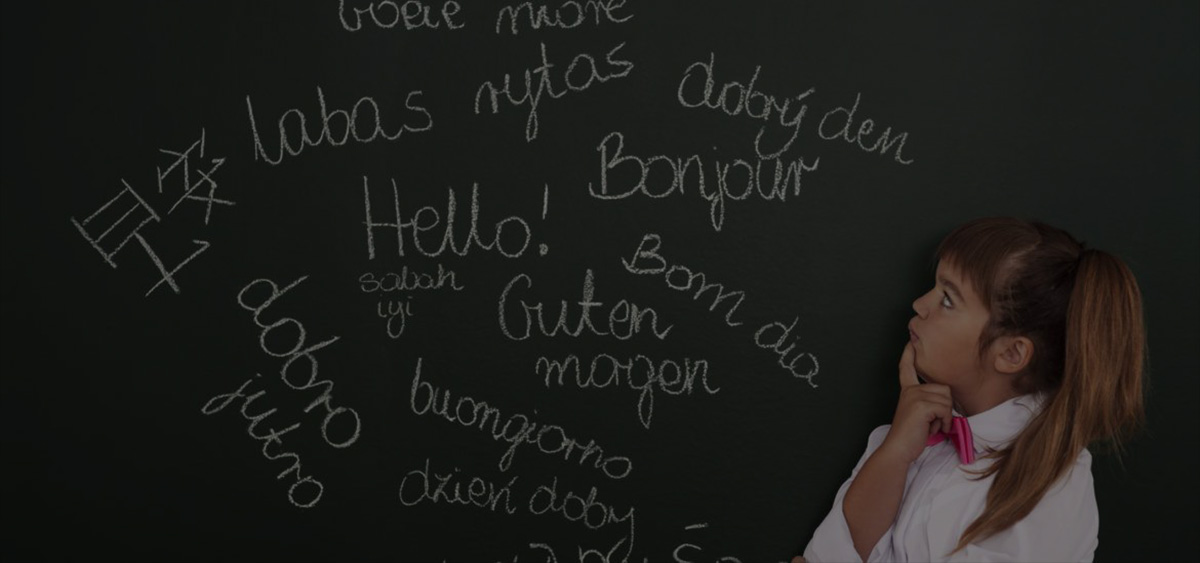 labas rytas
dobrý den
早安
Bonjour
Hello!
sabah
iyi
Bom dia
Guten
morgen
dobro
jutro
buongiorno
dzień doby